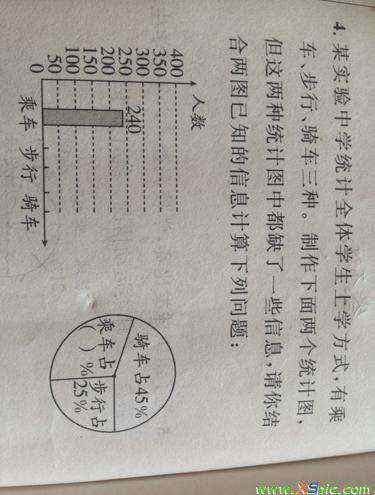 4. 某实验中学统计全体学生上学方式,有乘
车、步行、骑车三种。制作下面两个统计图,
但这两种统计图中都缺了一些信息,请你结
合两图已知的信息计算下列问题:
人数
400
350
300
250
200
150
100
50
0
240
乘车 步行 骑车
骑车占45%
乘车占
( )%
步行占
25%
www.XSpic.com